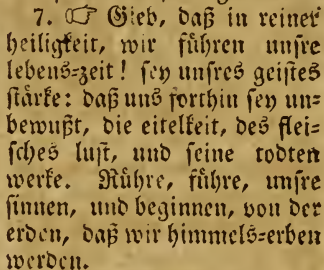 7. ☞ Gieb, daß in reiner
heiligkeit, wir führen unsre
lebens-zeit! sey unsres geistes
stärke: daß uns forthin sey un-
bewußt, die eitelkeit, des flei-
sches lust, und seine todten
werke. Rühre, führe, unsre
sinnen, und beginnen, von der
erden, daß wir himmels-erben
werden.